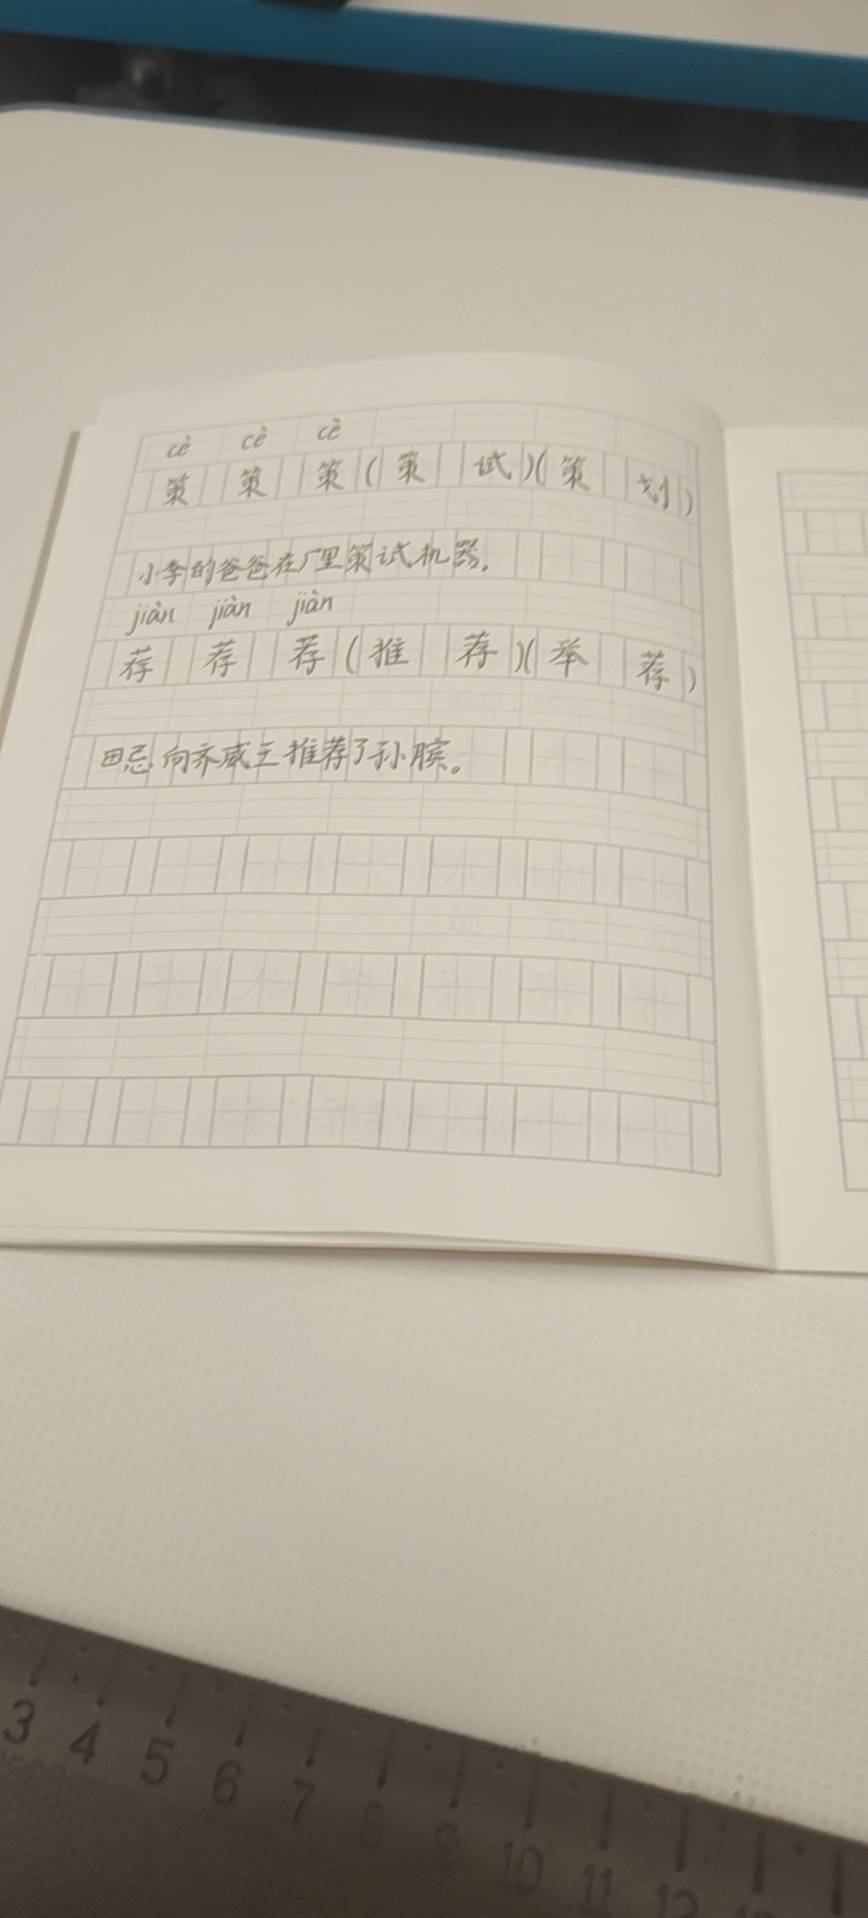 cè cè cè
策 策 策 (策 试)(策 划)
小李的爸爸在厂里策试机器.
jiàn jiàn jiàn
荐 荐 荐 (推 荐)(举 荐)
田忌向齐威王推荐了孙膑。
3 4 5 6 7 8 9 10 11 12